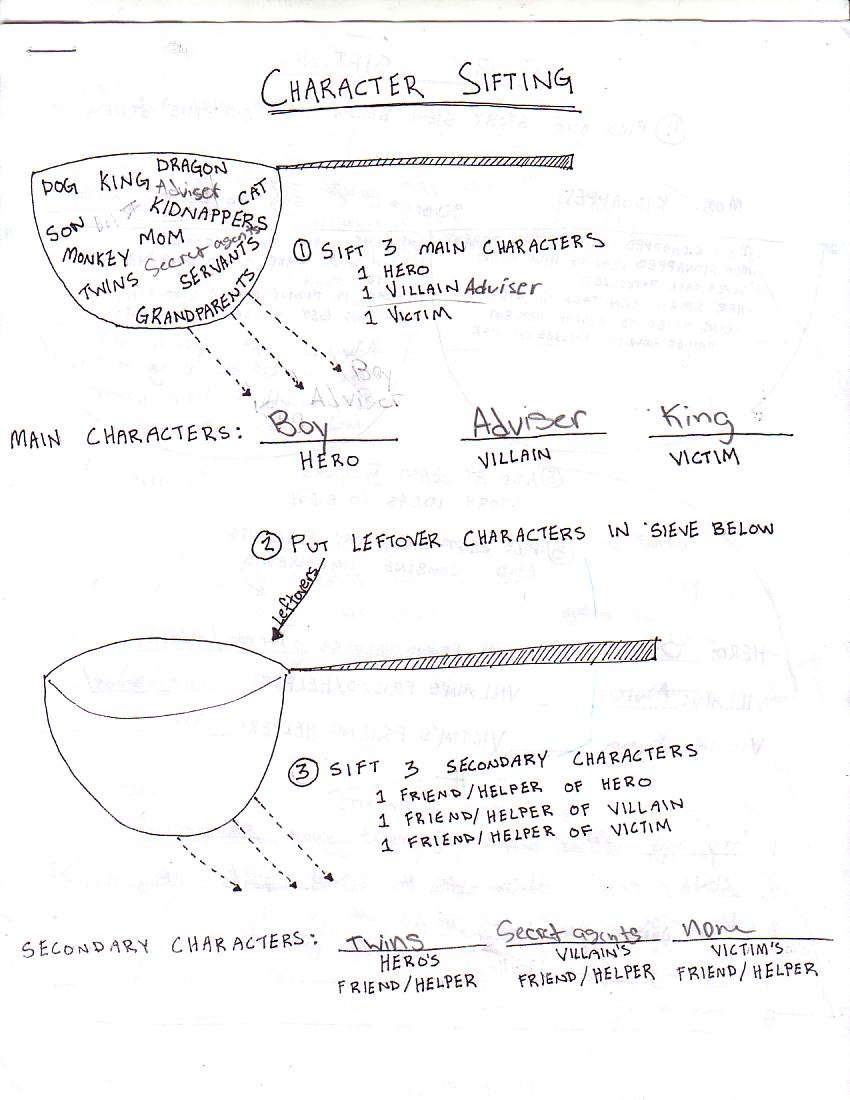 CHARACTER SIFTING
DRAGON
DOG KING Adviser CAT
KIDNAPPERS
SON
MOM
MONKEY Secret agents
TWINS SERVANTS
GRANDPARENTS
① SIFT 3 MAIN CHARACTERS
1 HERO
1 VILLAIN Adviser
1 VICTIM
Boy
Adviser
MAIN CHARACTERS: Boy Adviser King
HERO VILLAIN VICTIM
② PUT LEFTOVER CHARACTERS IN SIEVE BELOW
Leftovers
③ SIFT 3 SECONDARY CHARACTERS
1 FRIEND/HELPER OF HERO
1 FRIEND/HELPER OF VILLAIN
1 FRIEND/HELPER OF VICTIM
SECONDARY CHARACTERS: Twins Secret agents none
HERO'S VILLAIN'S VICTIM'S
FRIEND/HELPER FRIEND/HELPER FRIEND/HELPER